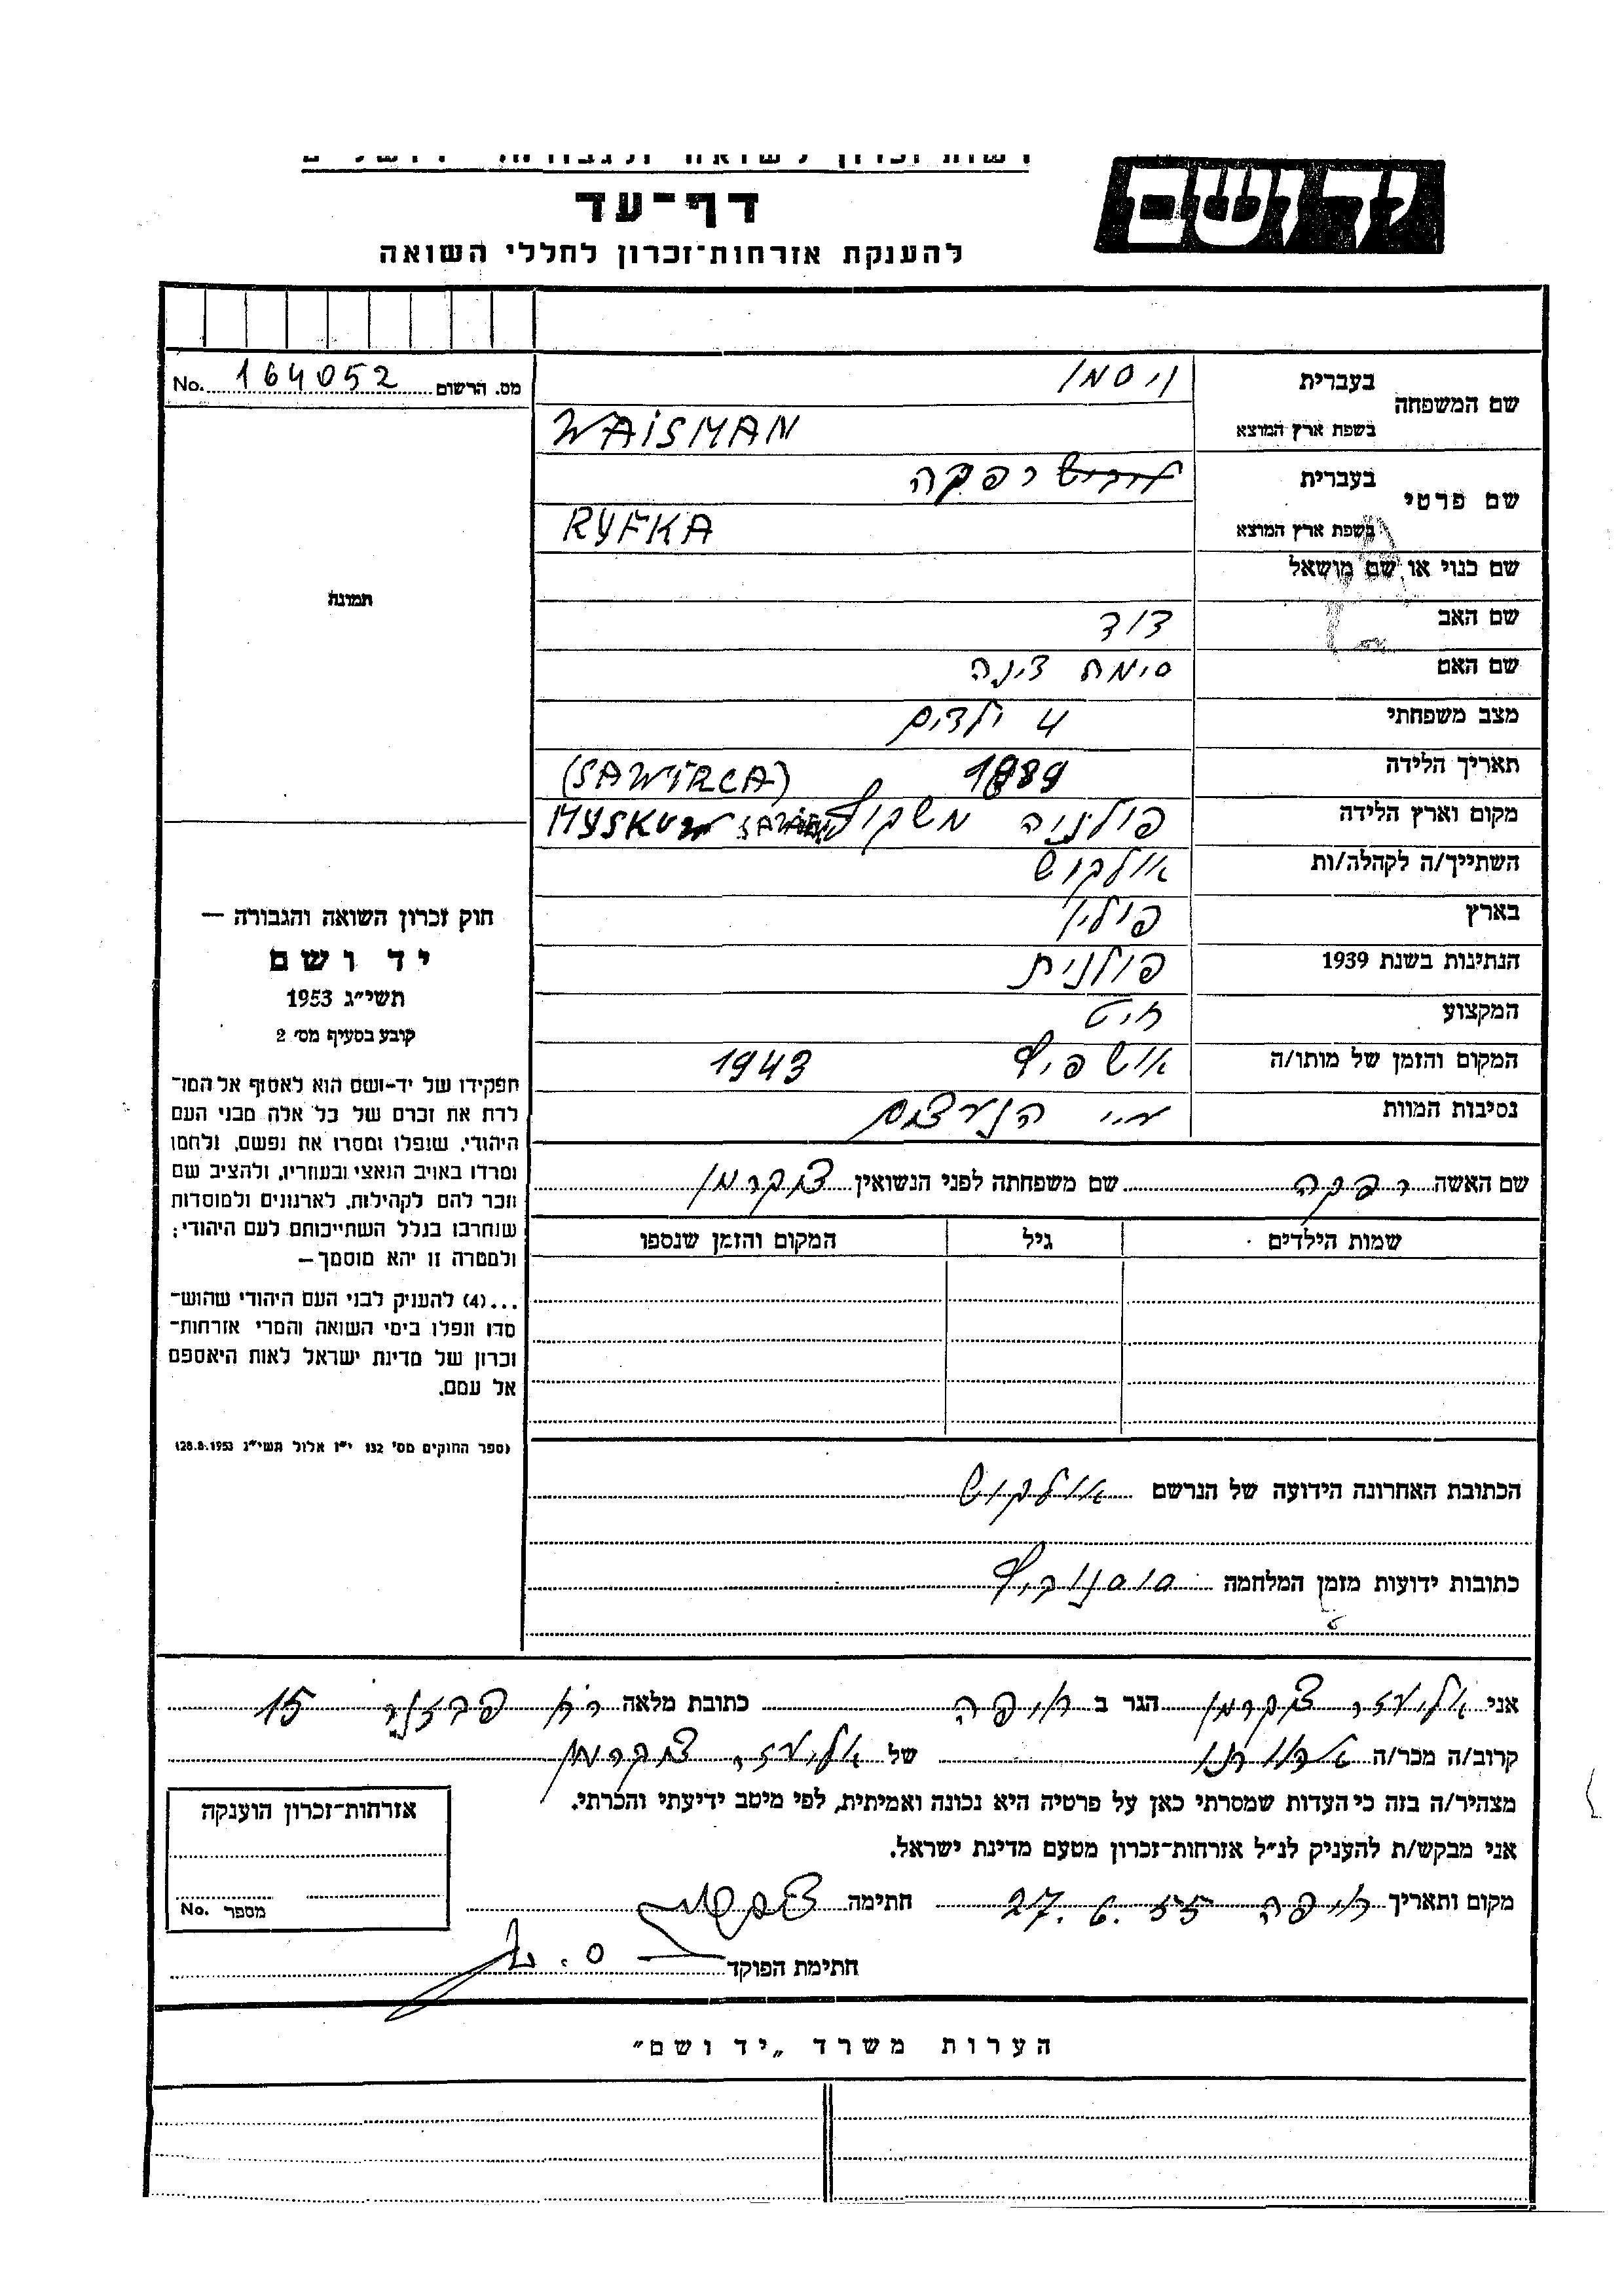 יד ושם
דף-עד
להענקת אזרחות-זכרון לחללי השואה
מס. הרשום 164052 No.
שם המשפחה
בעברית ויסמן
בשפת ארץ המוצא WAISMAN
שם פרטי
בעברית רפקה
בשפת ארץ המוצא RYFKA
שם כנוי או שם מושאל
שם האב דוד
שם האם סימה דינה
מצב משפחתי 4 ילדים
תאריך הלידה 1889 (SAWIRCA)
מקום וארץ הלידה פולניה
השתייך/ה לקהלה/ות אולקוש
בארץ פולין
הנתינות בשנת 1939 פולנית
המקצוע חיט
המקום והזמן של מותו/ה אושפיץ 1943
נסיבות המוות ע"י הנאצים
שם האשה רפקה שם משפחתה לפני הנשואין צוקרמן
שמות הילדים גיל המקום והזמן שנספו
הכתובת האחרונה הידועה של הנרשם אולקוש
כתובות ידועות מזמן המלחמה סוסנוביץ
תמונה
חוק זכרון השואה והגבורה —
יד ושם
תשי״ג 1953
קובע בסעיף מס׳ 2
תפקידו של יד-ושם הוא לאסוף אל המו-
לדת את זכרם של כל אלה מבני העם
היהודי, שנפלו ומסרו את נפשם, נלחמו
ומרדו באויב הנאצי ובעוזריו, ולהציב שם
וזכר להם לקהילות, לארגונים ולמוסדות
שנחרבו בגלל השתייכותם לעם היהודי;
ולמטרה זו יהא מוסמך—
...(4) להעניק לבני העם היהודי שהוש-
מדו ונפלו בימי השואה והמרי אזרחות-
זכרון של מדינת ישראל לאות היאספם
אל עמם.
(ספר החוקים מס׳ 132 י״ז אלול תשי״ג 28.8.1953)
אני אליעזר צוקרמן הגר ב חיפה כתובת מלאה רח 15
קרוב/ה מכר/ה של אליעזר צוקרמן
מצהיר/ה בזה כי העדות שמסרתי כאן על פרטיה היא נכונה ואמיתית, לפי מיטב ידיעתי והכרתי.
אני מבקש/ת להעניק לנ״ל אזרחות-זכרון מטעם מדינת ישראל.
מקום ותאריך חיפה 27.6.55 חתימה
חתימת הפוקד
אזרחות-זכרון הוענקה
מספר No.
הערות משרד „יד ושם״